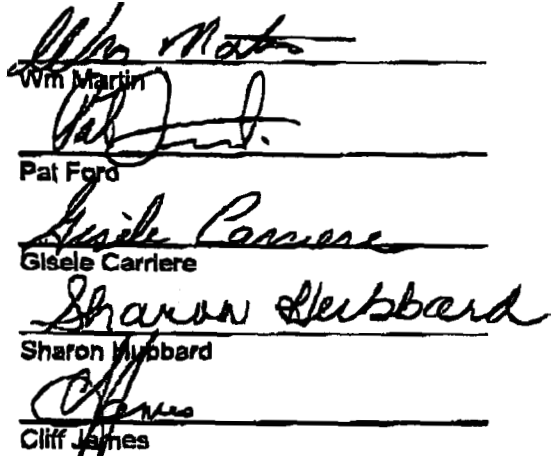 Wm Martin
Wm Martin
Pat Ford
Pat Ford
Gisele Carriere
Gisele Carriere
Sharon Hubbard
Sharon Hubbard
C James
Cliff James